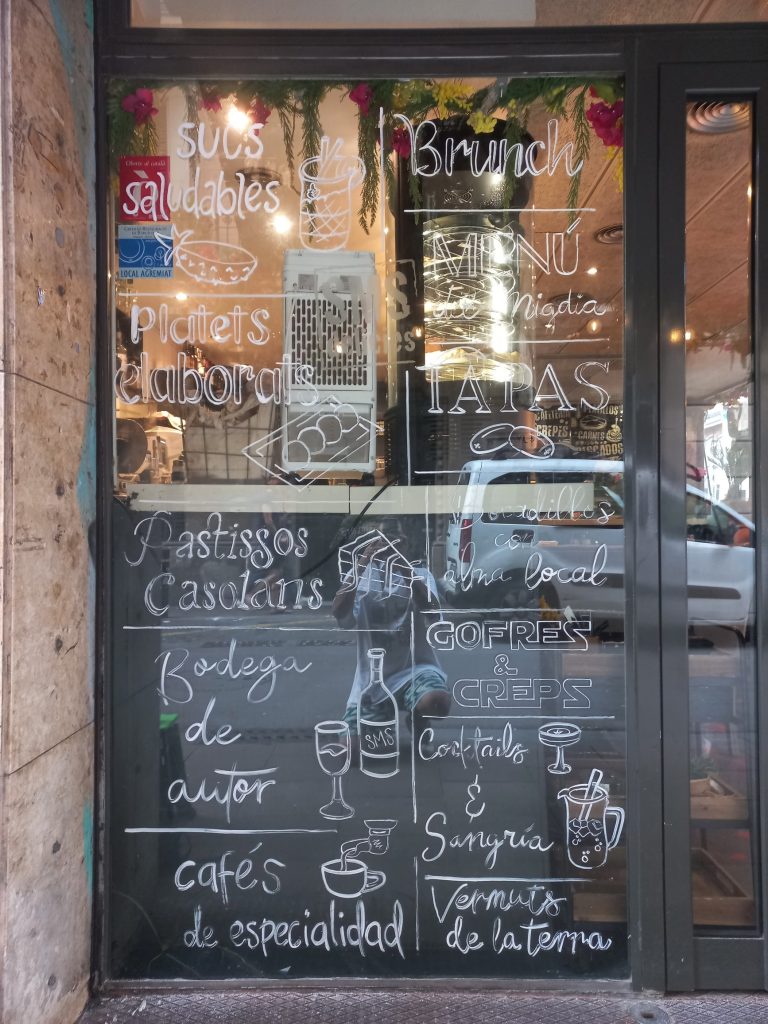 sucs
saludables
Platets
elaborats
Pastissos
Casolans
Bodega
de
autor
SMS
cafés
de especialidad
Brunch
MENÚ
de Migdia
TAPAS
Bocadillos
con
alma local
GOFRES
&
CREPS
Cocktails
&
Sangría
Vermuts
de la terra
LOCAL AGREMIAT
CREPES
CARNES
PESCADOS